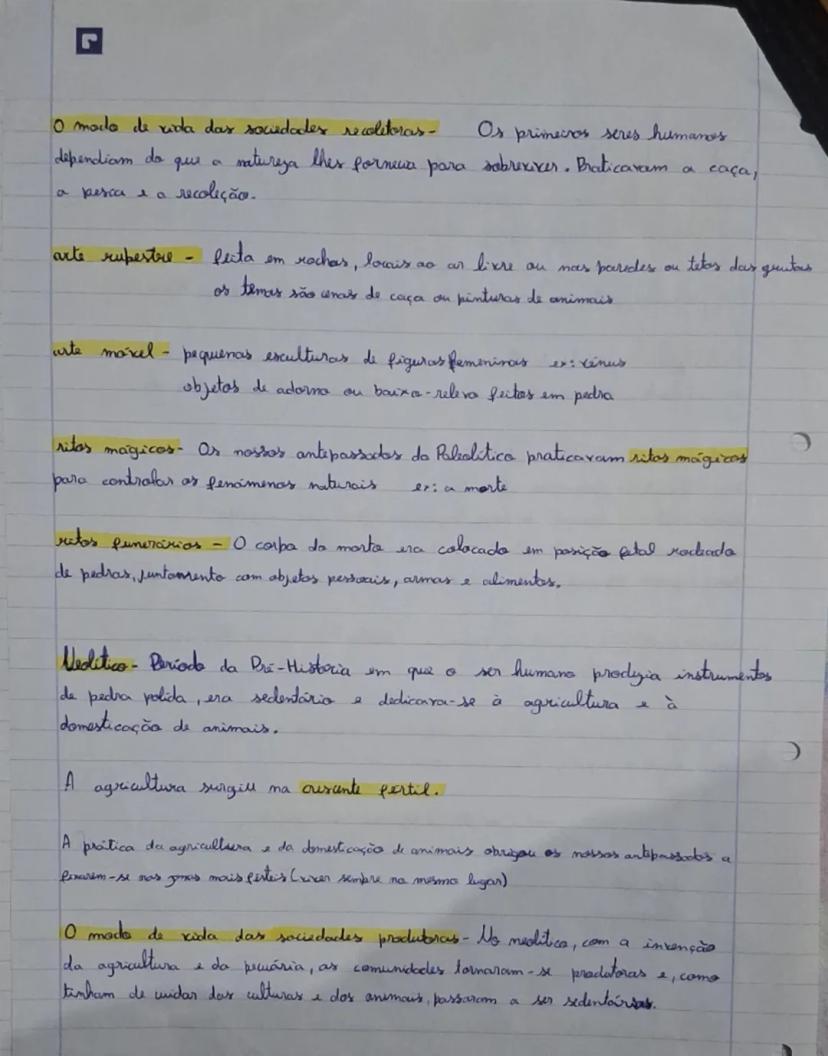 O modo de vida das sociedades recoletoras - Os primeiros seres humanos
dependiam do que a natureza lhes fornecia para sobreviver. Praticavam a caça,
a pesca e a recoleção.
arte rupestre - feita em rochas, locais ao ar livre ou nas paredes ou tetos das grutas
os temas são cenas de caça ou pinturas de animais
arte móvel - pequenas esculturas de figuras femininas ex: vénus
objetos de adorno ou baixo-relevo feitos em pedra
ritos mágicos - Os nossos antepassados do Paleolítico praticavam ritos mágicos
para controlar os fenómenos naturais ex: a morte
ritos funerários - O corpo do morto era colocado em posição fetal rodeado
de pedras, juntamente com objetos pessoais, armas e alimentos.
Neolítico - Período da Pré-História em que o ser humano produzia instrumentos
de pedra polida, era sedentário e dedicava-se à agricultura e à
domesticação de animais.
A agricultura surgiu no crescente fertil.
A prática da agricultura e da domesticação de animais obrigou os nossos antepassados a
fixarem-se nas zonas mais férteis (viver sempre no mesmo lugar)
O modo de vida das sociedades produtoras - No neolítico, com a invenção
da agricultura e da pecuária, as comunidades tornaram-se produtoras e, como
tinham de cuidar das culturas e dos animais, passaram a ser sedentárias.